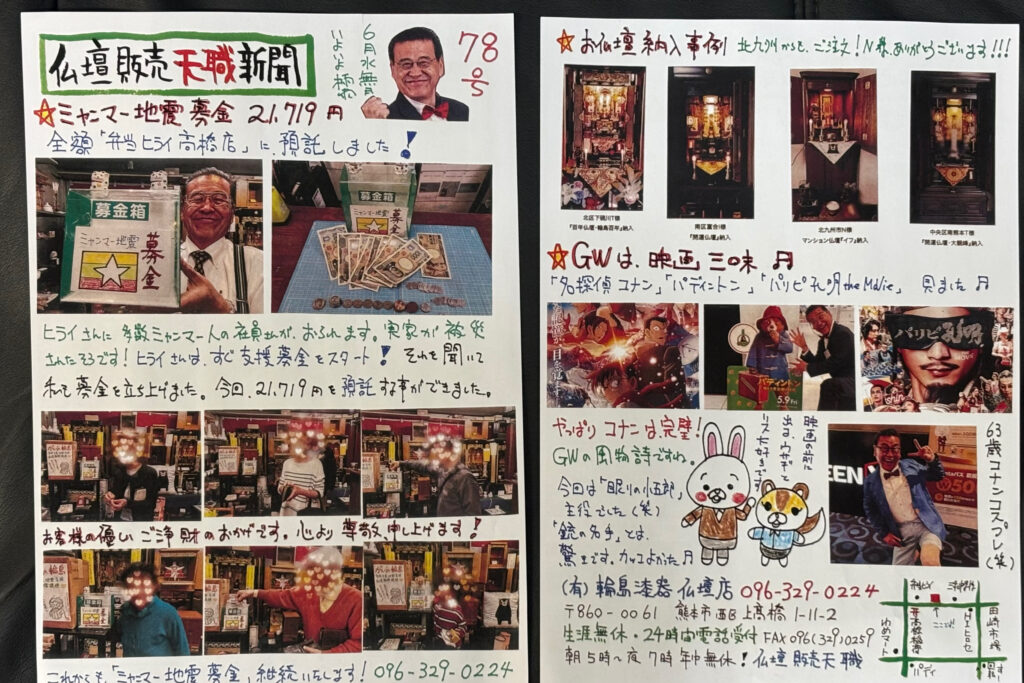 仏壇販売天職新聞
78号
☆ミャンマー地震募金 21,719円
全額「弁当ヒライ高橋店」に、預託しました!
募金箱
ミャンマー地震
募金
募金箱
ミャンマー地震
募金
ヒライさんに多数ミャンマー人の社員さんが、おられます。実家が被災
されたそうです!ヒライさんは、すぐ支援募金をスタート!それを聞いて
私も募金を立ち上げました。今回、21,719円を預託する事ができました。
お客様の優しいご浄財のおかげです。心より尊敬申し上げます!
これからも、「ミャンマー地震募金」継続いたします!096-329-0224
☆お仏壇納入事例 北九州からも、ご注文!N様、ありがとうございます!!!
北区下硯川T様
『百年仏壇・輪島百年』納入
南区富合I様
『開運仏壇』納入
北九州市N様
マンション仏壇『イフ』納入
中央区南熊本T様
『開運仏壇・大観峰』納入
☆GWは、映画三昧♬
「名探偵コナン」「パディントン」「パリピ孔明the Movie」見ました♬
5.9 Fri
パリピ孔明
やっぱりコナンは、完璧!
GWの風物詩ですね。
今回は「眠りの小五郎」
主役でした(笑)
「銃の名手」とは、
驚きです。カッコよかった♬
映画の前に
出る、ウサギと
リス、大好きです!
63歳コナンコスプレ(笑)
(有)輪島漆器仏壇店 096-329-0224
〒860-0061 熊本市西区上高橋1-11-2
生涯無休・24時間電話受付 FAX096(329)0259
朝5時〜夜7時年中無休!仏壇販売天職
田崎市場